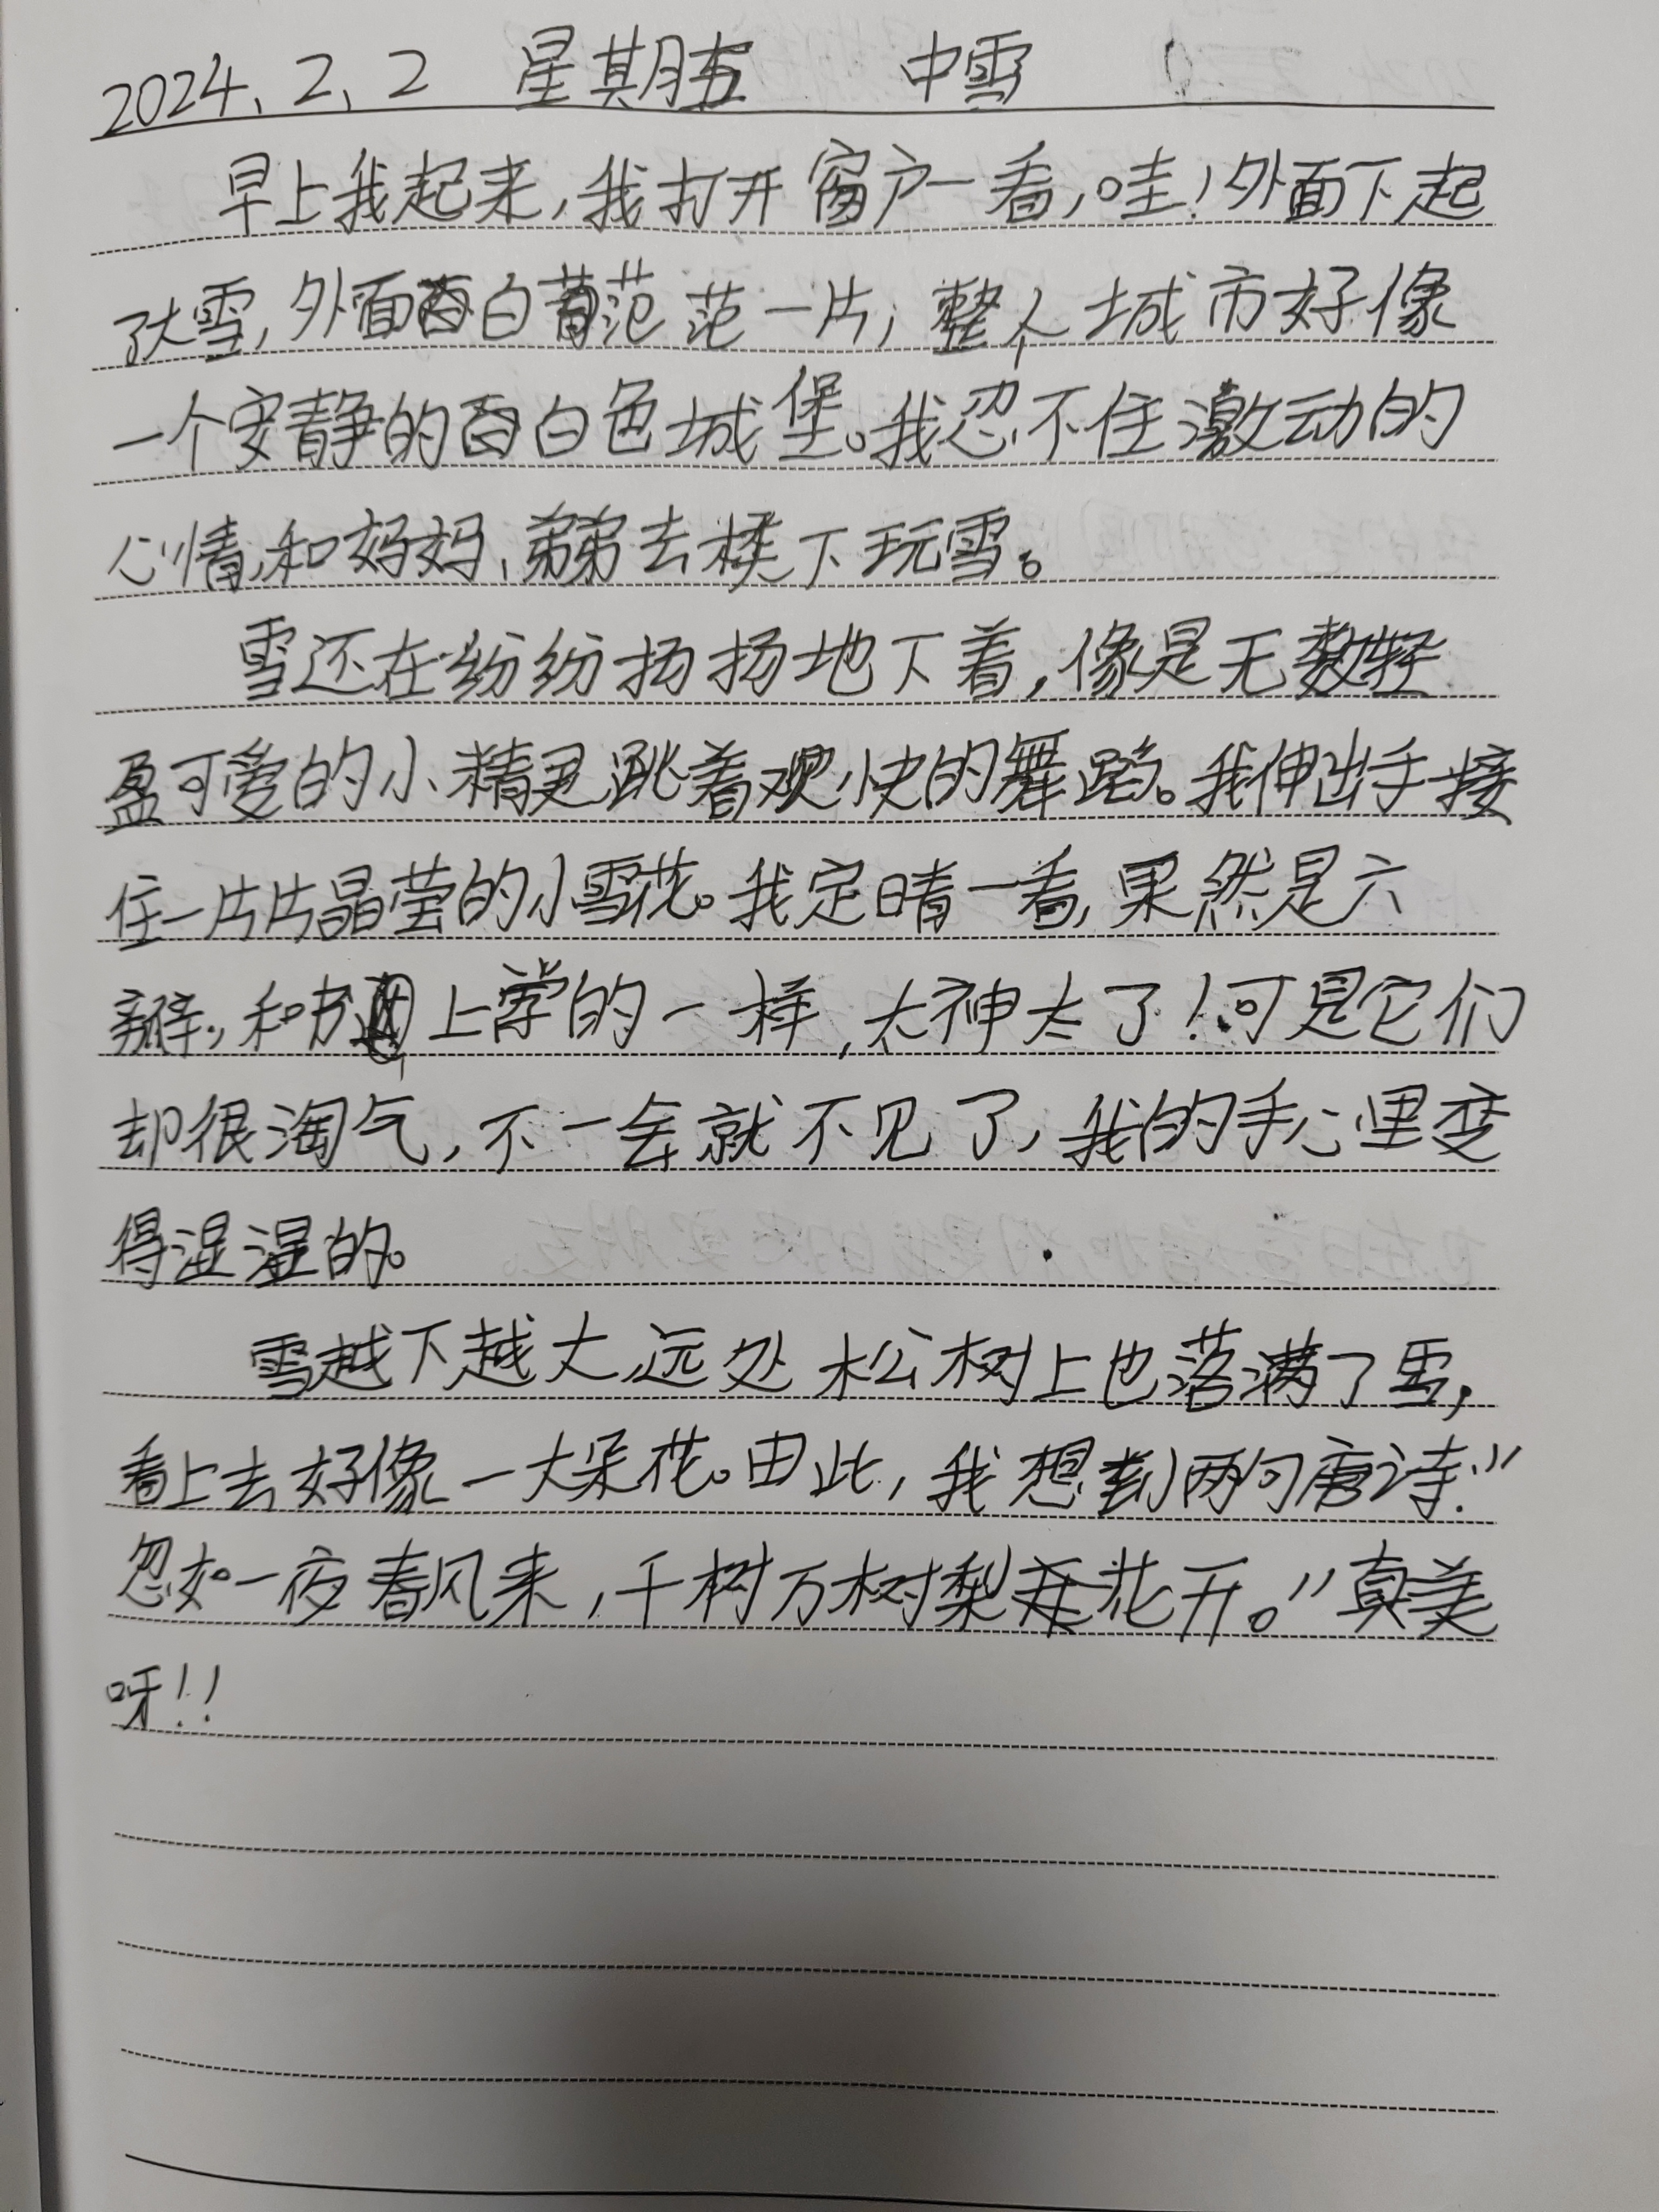 2024、2、2 星期五 中雪
早上我起来,我打开窗户一看,哇!外面下起
了大雪,外面白范范一片,整个城市好像
一个安静的白色城堡。我忍不住激动的
心情,和妈妈、弟弟去楼下玩雪。
雪还在纷纷扬扬地下着,像是无数轻
盈可爱的小精灵跳着欢快的舞蹈。我伸出手接
住一片片晶莹的小雪花。我定晴一看,果然是六
瓣,和书上学的一样,太神太了!可是它们
却很淘气,不一会就不见了,我的手心里变
得湿湿的。
雪越下越大,远处松树上也落满了雪,
看上去好像一大朵花。由此,我想到两句唐诗:“
忽如一夜春风来,千树万树梨花开。”真美
呀!!